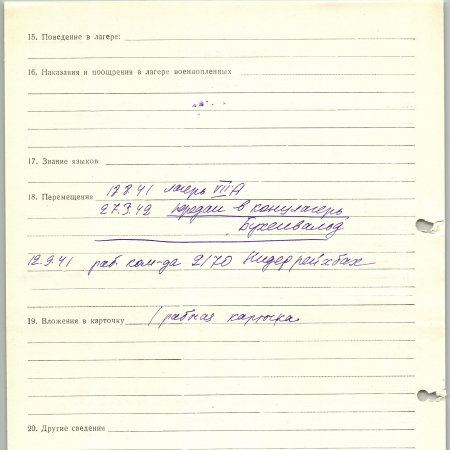 15. Поведение в лагере:
16. Наказания и поощрения в лагере военнопленных
17. Знание языков
18. Перемещение 12 8 41 лагерь VII A
27.3.42 передан в концлагерь
Бухенвальд
12.9.41 раб. ком-да 2170 Нидеррейхбах
19. Вложения в карточку 1 рабочая карточка
20. Другие сведения